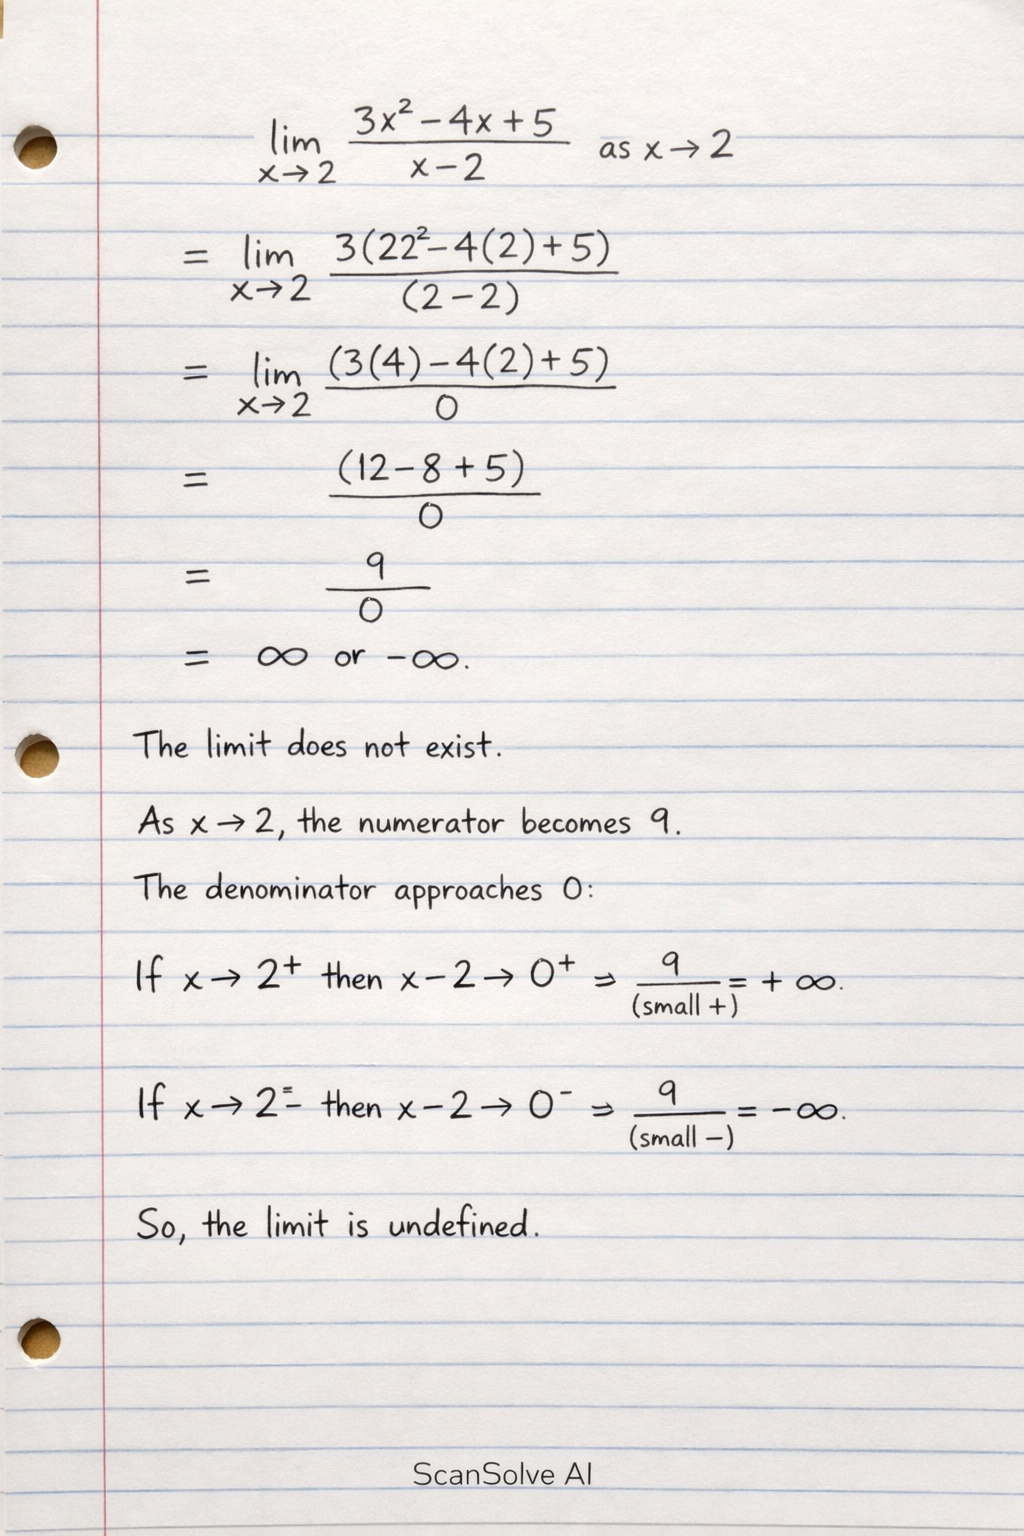 lim x→2 (3x² – 4x + 5)/(x – 2) as x → 2
= lim x→2 3(22² – 4(2) + 5)/(2 – 2)
= lim x→2 (3(4) – 4(2) + 5)/0
= (12 – 8 + 5)/0
= 9/0
= ∞ or –∞.
The limit does not exist.
As x → 2, the numerator becomes 9.
The denominator approaches 0:
If x → 2⁺ then x – 2 → 0⁺ ⇒ 9/(small +) = + ∞.
If x → 2⁼- then x – 2 → 0⁻ ⇒ 9/(small –) = –∞.
So, the limit is undefined.
ScanSolve AI